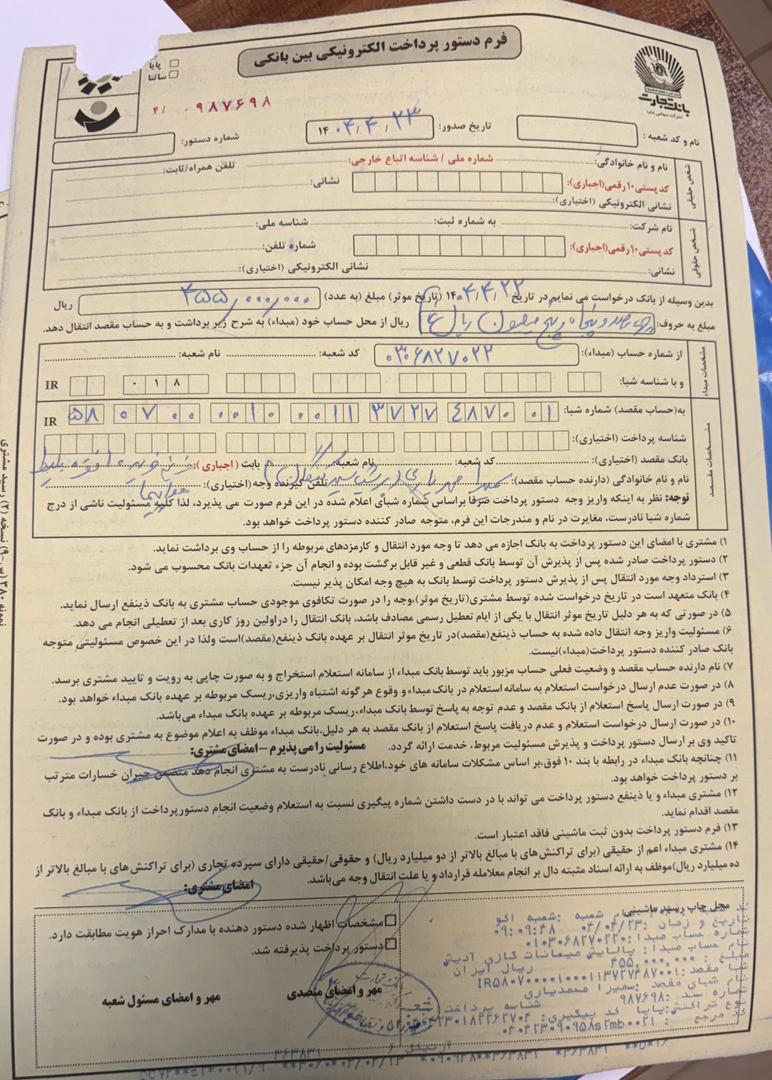 فرم دستور پرداخت الکترونیکی بین بانکی
بانک تجارت
پایا
ساتنا
۴/ ۰۹۸۷۶۹۸
نام و کد شعبه :
تاریخ صدور: ۱۴۰۴/۴/۲۳
شماره دستور:
شخص حقیقی
نام و نام خانوادگی: شماره ملی / شناسه اتباع خارجی: تلفن همراه/ثابت:
کدپستی ۱۰رقمی(اجباری): نشانی:
نشانی الکترونیکی (اختیاری):
شخص حقوقی
نام شرکت: به شماره ثبت: شناسه ملی:
کدپستی ۱۰رقمی(اجباری): شماره تلفن:
نشانی: نشانی الکترونیکی (اختیاری):
بدین وسیله از بانک درخواست می نمایم در تاریخ ۱۴۰۴/۴/۲۳ (تاریخ موثر) مبلغ (به عدد) ۴۵۵/۰۰۰/۰۰۰ ریال
مبلغ به حروف: چهارصد و پنجاه و پنج میلیون ریال ریال از محل حساب خود (مبداء) به شرح زیر برداشت و به حساب مقصد انتقال دهد.
مشخصات مبداء
از شماره حساب (مبداء): ۰۳۰۶۸۲۷۰۲۲ کد شعبه: نام شعبه:
و با شناسه شبا: ۰۱۸ IR
مشخصات مقصد
به(حساب مقصد) شماره شبا: IR ۵۸ ۰۷۰۰ ۰۰۱۰ ۰۰۱۱ ۳۷۲۷ ۴۸۷۰ ۰۱
شناسه پرداخت (اختیاری):
بانک مقصد (اختیاری): کد شعبه: نام شعبه: بابت (اجباری):
نام و نام خانوادگی (دارنده حساب مقصد): سمیرا تلفن گیرنده وجه(اختیاری): بلیط هواپیما
توجه: نظر به اینکه واریز وجه دستور پرداخت صرفا براساس شماره شبای اعلام شده در این فرم صورت می پذیرد، لذا کلیه مسئولیت ناشی از درج
شماره شبا نادرست، مغایرت در نام و مندرجات این فرم، متوجه صادر کننده دستور پرداخت خواهد بود.
۱) مشتری با امضای این دستور پرداخت به بانک اجازه می دهد تا وجه مورد انتقال و کارمزدهای مربوطه را از حساب وی برداشت نماید.
۲) دستور پرداخت صادر شده پس از پذیرش آن توسط بانک قطعی و غیر قابل برگشت بوده و انجام آن جزء تعهدات بانک محسوب می شود.
۳) استرداد وجه مورد انتقال پس از پذیرش دستور پرداخت توسط بانک به هیچ وجه امکان پذیر نیست.
۴) بانک متعهد است در تاریخ درخواست شده توسط مشتری(تاریخ موثر)،وجه را در صورت تکافوی موجودی حساب مشتری به بانک ذینفع ارسال نماید.
۵) در صورتی که به هر دلیل تاریخ موثر انتقال با یکی از ایام تعطیل رسمی مصادف باشد، بانک انتقال را در اولین روز کاری بعد از تعطیلی انجام می دهد.
۶) مسئولیت واریز وجه انتقال داده شده به حساب ذینفع(مقصد)در تاریخ موثر انتقال بر عهده بانک ذینفع(مقصد)است ولذا در این خصوص مسئولیتی متوجه
بانک صادر کننده دستور پرداخت(مبداء)نیست.
۷) نام دارنده حساب مقصد و وضعیت فعلی حساب مزبور باید توسط بانک مبداء از سامانه استعلام استخراج و به صورت چاپی به رویت و تایید مشتری برسد.
۸) در صورت عدم ارسال درخواست استعلام به سامانه استعلام در بانک مبداء و وقوع هر گونه اشتباه واریزی،ریسک مربوطه بر عهده بانک مبداء خواهد بود.
۹) در صورت ارسال پاسخ استعلام از بانک مقصد و عدم توجه به پاسخ توسط بانک مبداء،ریسک مربوطه بر عهده بانک مبداء می‌باشد.
۱۰) در صورت ارسال درخواست استعلام و عدم دریافت پاسخ استعلام از بانک مقصد به هر دلیل،بانک مبداء موظف به اعلام موضوع به مشتری بوده و در صورت
تاکید وی بر ارسال دستور پرداخت و پذیرش مسئولیت مربوط، خدمت ارائه گردد. مسئولیت را می پذیرم – امضای مشتری:
۱۱) چنانچه بانک مبداء در رابطه با بند ۱۰ فوق،بر اساس مشکلات سامانه های خود،اطلاع رسانی نادرست به مشتری انجام دهد متضمن جبران خسارات مترتب
بر دستور پرداخت خواهد بود.
۱۲) مشتری مبداء و یا ذینفع دستور پرداخت می تواند با در دست داشتن شماره پیگیری نسبت به استعلام وضعیت انجام دستورپرداخت از بانک مبداء و بانک
مقصد اقدام نماید.
۱۳) فرم دستور پرداخت بدون ثبت ماشینی فاقد اعتبار است.
۱۴) مشتری مبداء اعم از حقیقی (برای تراکنش‌های با مبالغ بالاتر از دو میلیارد ریال) و حقوقی/حقیقی دارای سپرده تجاری (برای تراکنش‌های با مبالغ بالاتر از
ده میلیارد ریال)موظف به ارائه اسناد مثبته دال بر انجام معامله قرارداد و یا علت انتقال وجه می‌باشد.
امضای مشتری:
محل چاپ رسید ماشینی
نام شعبه :شعبه اکو
تاریخ و زمان :۰۴/۰۴/۲۳ ۰۹:۰۹:۴۸
شماره حساب مبدا:۰۱۰۳۰۶۸۲۷۰۲۲
نام حساب مبدا: پالایش میعانات گازی آدیش
مبلغ : ۴۵۵,۰۰۰,۰۰۰ ریال ایران
شبا مقصد:IR۵۸۰۷۰۰۰۰۱۰۰۰۱۱۳۷۲۷۴۸۷۰۰۱
شماره سند: ۹۸۷۶۹۸ شناسه پرداخت
نوع تراکنش:پایا کد پیگیری:
مشخصات اظهار شده دستور دهنده با مدارک احراز هویت مطابقت دارد.
دستور پرداخت پذیرفته شد.
مهر و امضای متصدی
مهر و امضای مسئول شعبه
نسخه (۲) رسید مشتری